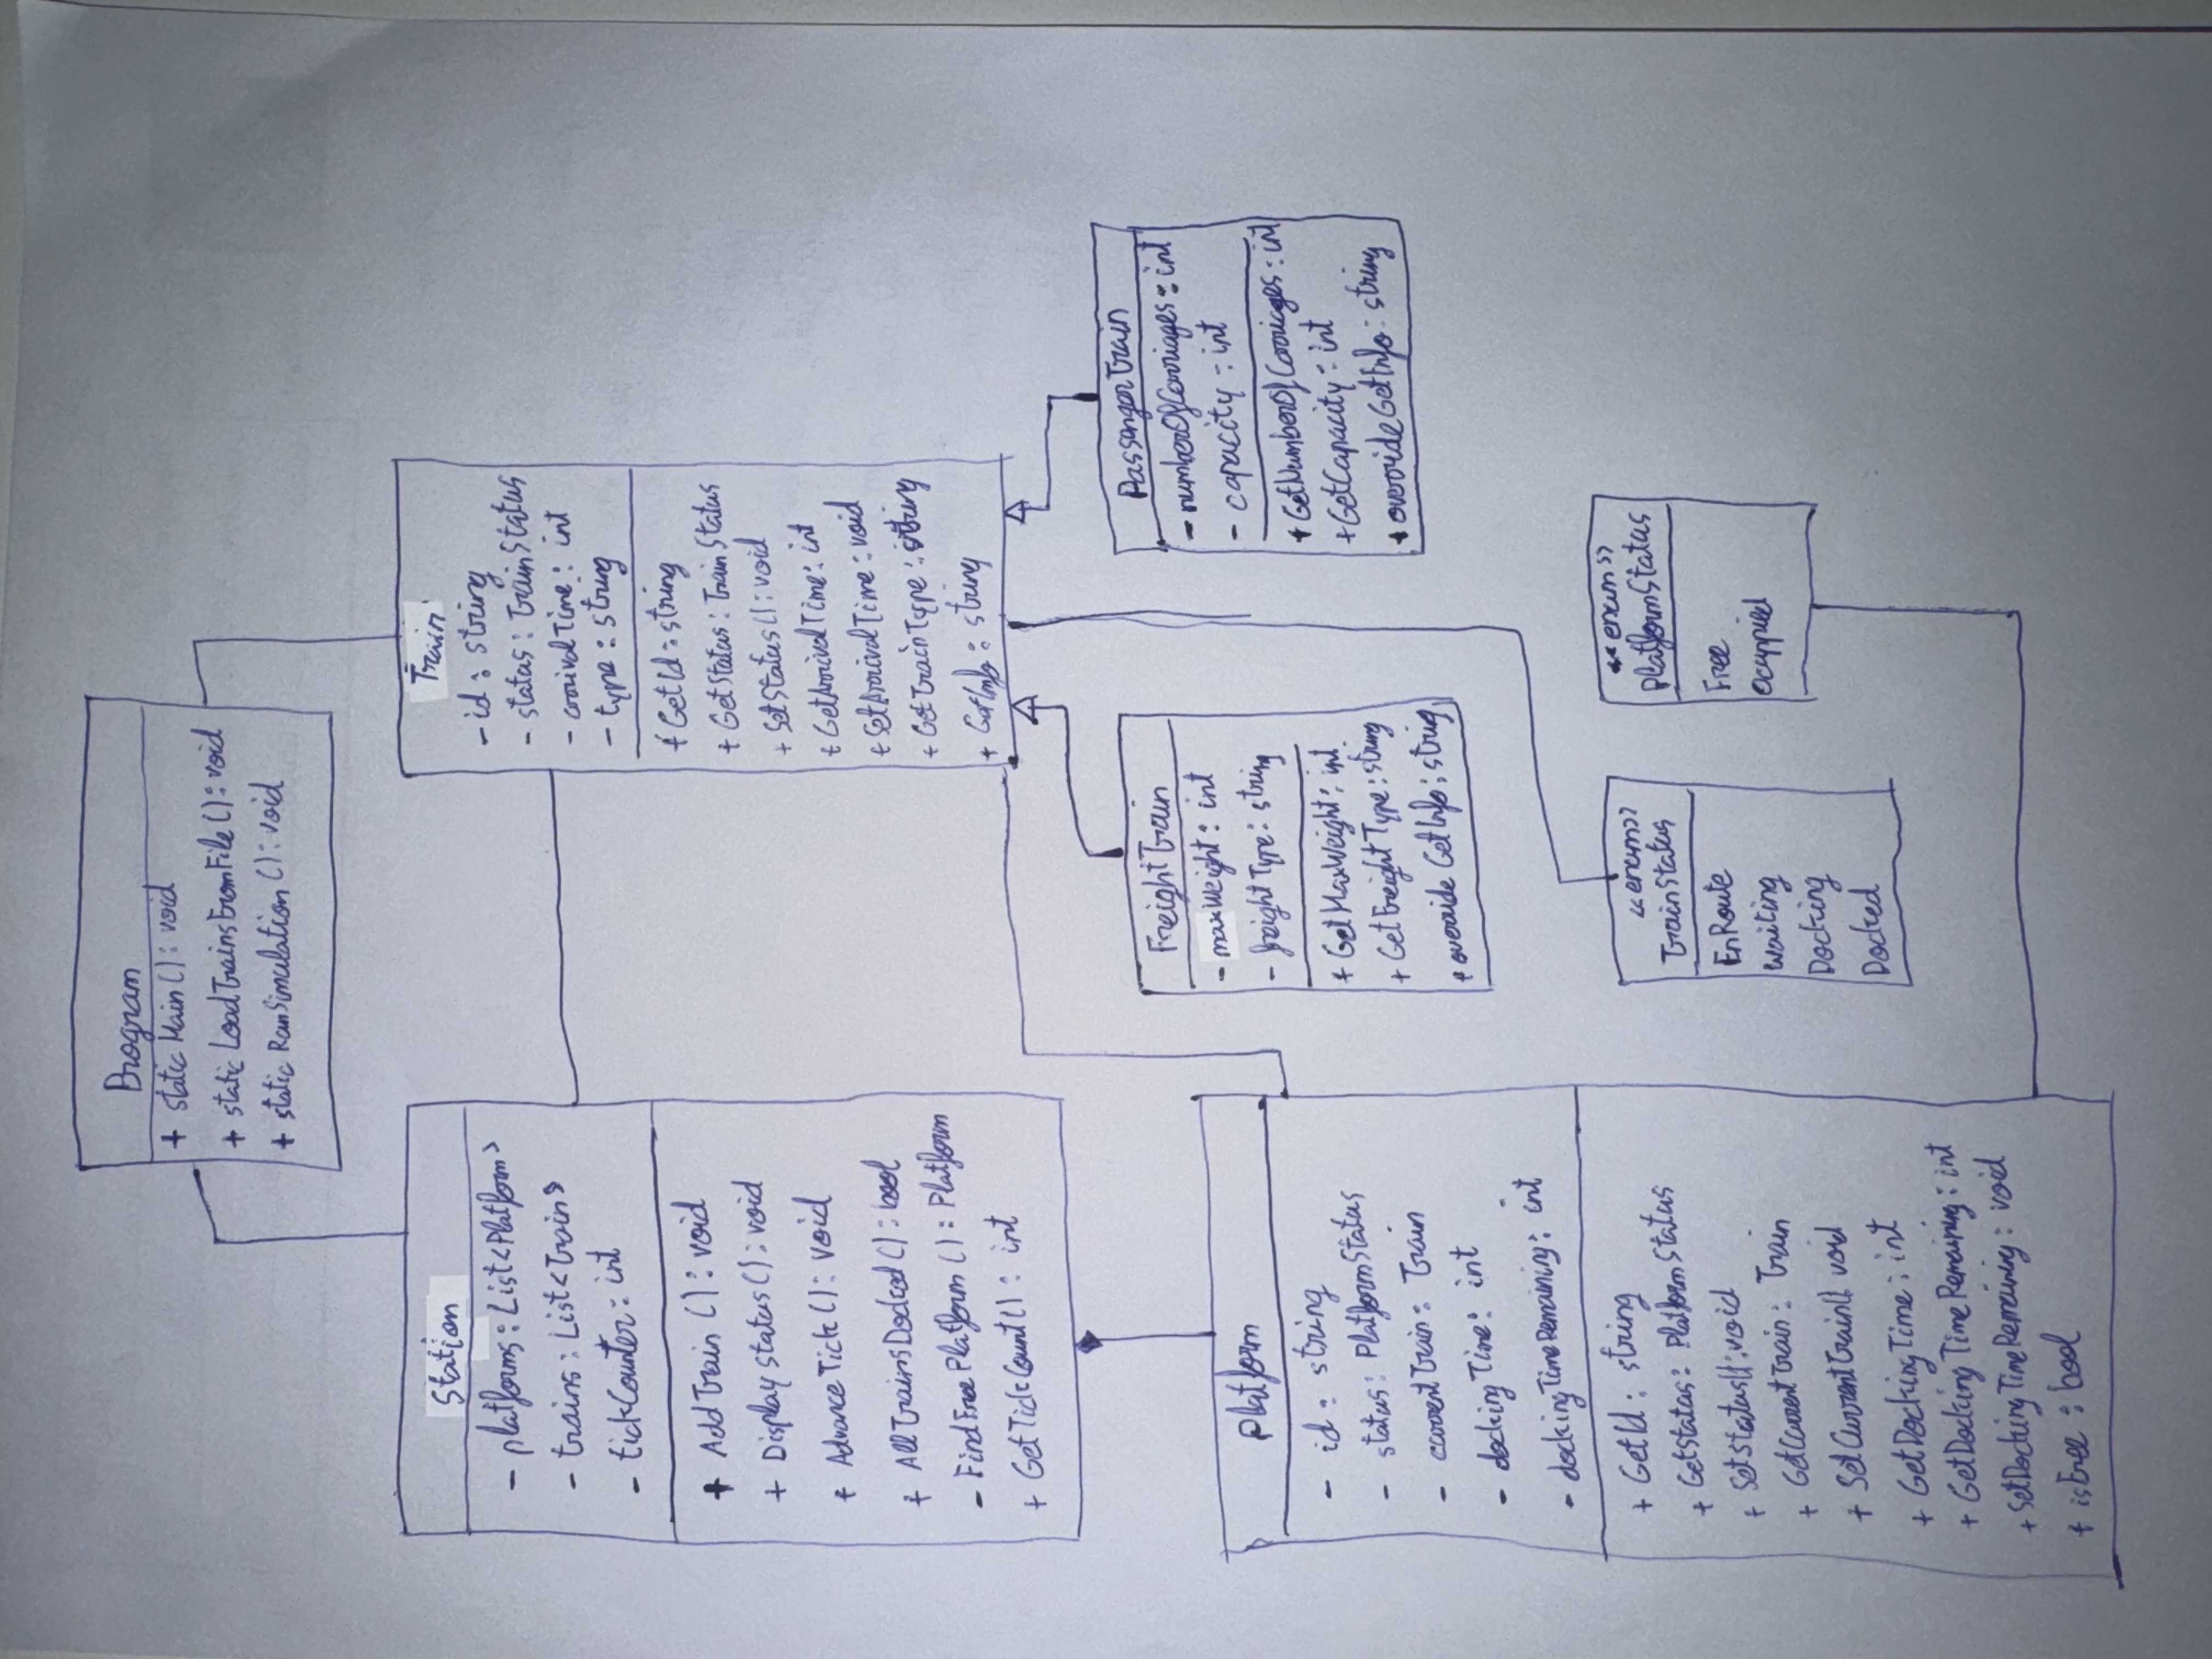 Program
+ static Main() : void
+ static LoadTrainsFromFile() : void
+ static RunSimulation() : void
Station
- platforms : List<Platform>
- trains : List<Train>
- tickCounter : int
+ AddTrain() : void
+ DisplayStatus() : void
+ AdvanceTick() : void
+ AllTrainsDocked() : bool
- FindFreePlatform() : Platform
+ GetTickCount() : int
Train
- id : string
- status : TrainStatus
- arrivalTime : int
- type : string
+ GetId : string
+ GetStatus : TrainStatus
+ SetStatus() : void
+ GetArrivalTime : int
+ SetArrivalTime : void
+ GetTrainType : string
+ GetInfo : string
FreightTrain
- maxWeight : int
- freightType : string
+ GetMaxWeight : int
+ GetFreightType : string
+ override GetInfo : string
PassengerTrain
- numberOfCarriages : int
- capacity : int
+ GetNumberOfCarriages : int
+ GetCapacity : int
+ override GetInfo : string
Platform
- id : string
- status : PlatformStatus
- currentTrain : Train
- dockingTime : int
- dockingTimeRemaining : int
+ GetId : string
+ GetStatus : PlatformStatus
+ SetStatus() : void
+ GetCurrentTrain : Train
+ SetCurrentTrain() void
+ GetDockingTime : int
+ GetDockingTimeRemaining : int
+ SetDockingTimeRemaining : void
+ isFree : bool
<<enum>>
TrainStatus
EnRoute
Waiting
Docking
Docked
<<enum>>
PlatformStatus
Free
Ocuppied